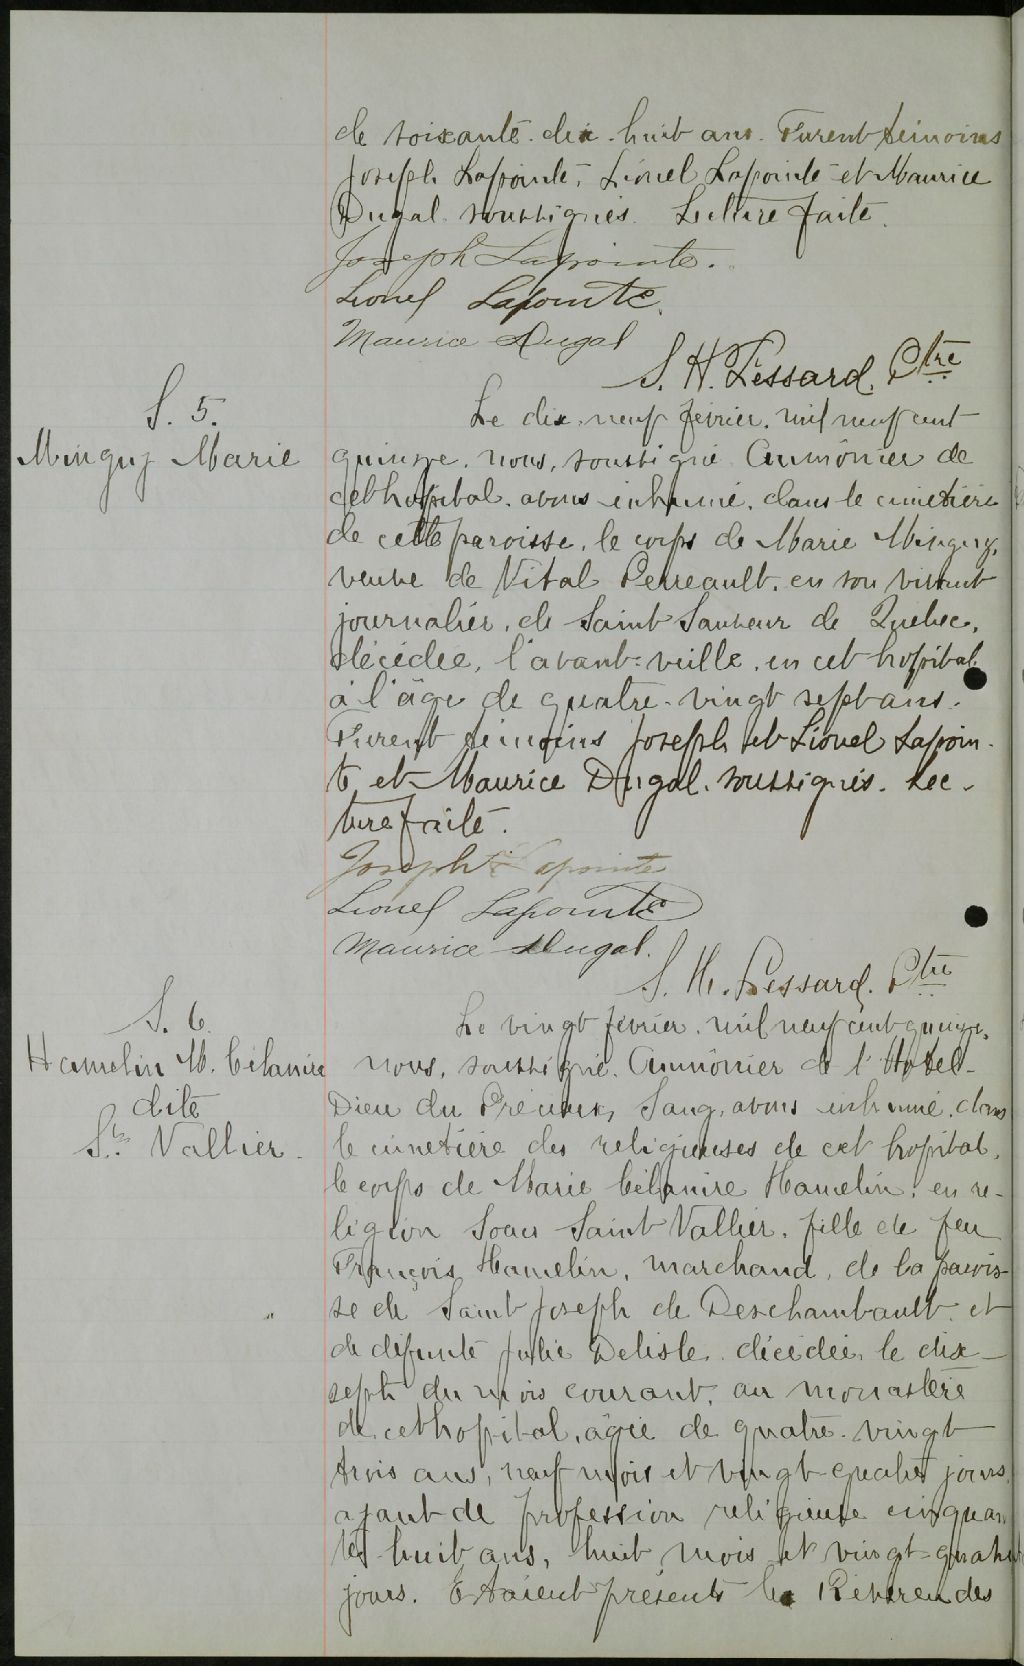 de soixante-dix-huit ans. Furent témoins
Joseph Lapointe, Lionel Lapointe et Maurice
Dugal soussignés. Lecture faite.
Joseph Lapointe.
Lionel Lapointe.
Maurice Dugal
S. H. Lessard. Ptre
S. 5.
Minguy Marie
Le dix-neuf février, mil neuf cent
quinze, nous, soussigné Aumônier de
cet hopital, avons inhumé, dans le cimetière
de cette paroisse, le corps de Marie Minguy,
veuve de Vital Perreault, en son vivant
journalier, de Saint Sauveur de Québec,
décédée, l'avant-veille, en cet hopital
à l'âge de quatre-vingt sept ans.
Furent témoins Joseph et Lionel Lapoin-
te et Maurice Dugal, soussignés. Lec-
ture faite.
Joseph Lapointe
Lionel Lapointe
Maurice Dugal.
S. H. Lessard. Ptre
S. 6.
Hamelin M. Célanire
dite
St. Vallier.
Le vingt février, mil neuf cent quinze,
nous, soussigné, Aumônier de l'Hotel-
Dieu du Précieux Sang, avons inhumé, dans
le cimetière des religieuses de cet hopital,
le corps de Marie Célanire Hamelin, en re-
ligion Soeur Saint Vallier, fille de feu
François Hamelin, marchand, de la parois-
se de Saint Joseph de Deschambault et
de défunte Julie Delisle, décédée, le dix-
sept du mois courant, au monastère
de cet hopital, agée de quatre-vingt
trois ans, neuf mois et vingt-quatre jours,
ayant de profession religieuse cinquan
te-huit ans, huit mois et vingt-quatre
jours. Etaient présents les Révérendes